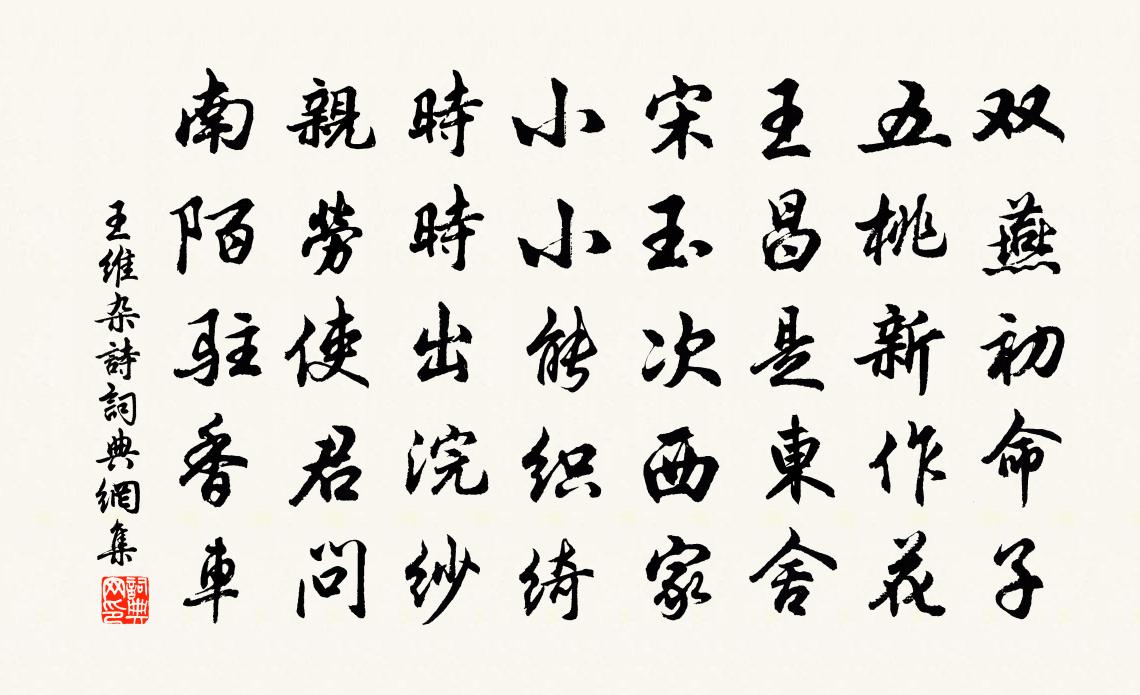 双燕初命子
五桃新作花
王昌是東舍
宋玉次西家
小小能织绮
時時出浣紗
親勞使君問
南陌駐香車
王维杂詩詞典網集
詞典网印